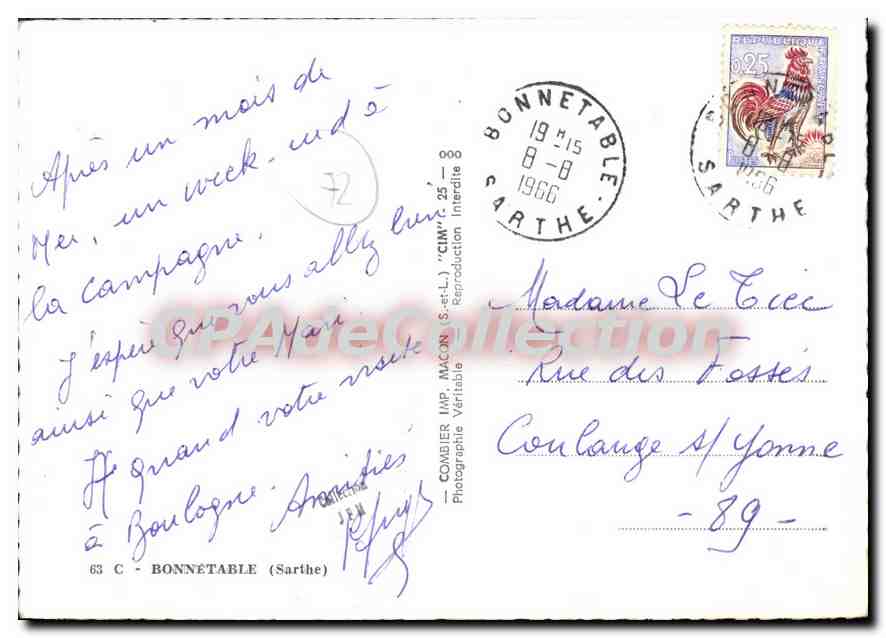 Après un mois de
Mer, un week-end à
la campagne.
J'espère que vous allez bien
ainsi que votre Mari.
A quand votre visite
à Boulogne. Amitiés
72
COLLECTION
J F M
63 C - BONNÉTABLE (Sarthe)
— COMBIER IMP. MACON (S.-et-L.) "CIM" : 25 — 000
Photographie Véritable Reproduction Interdite
BONNETABLE
19 H 15
8 - 8
1966
SARTHE
REPUBLIQUE FRANÇAISE
0,25
8 - 8
1966
SARTHE
Madame Le Tiec
Rue des Fossés
Coulange s/ Yonne
- 89 -
CPAdeCollection